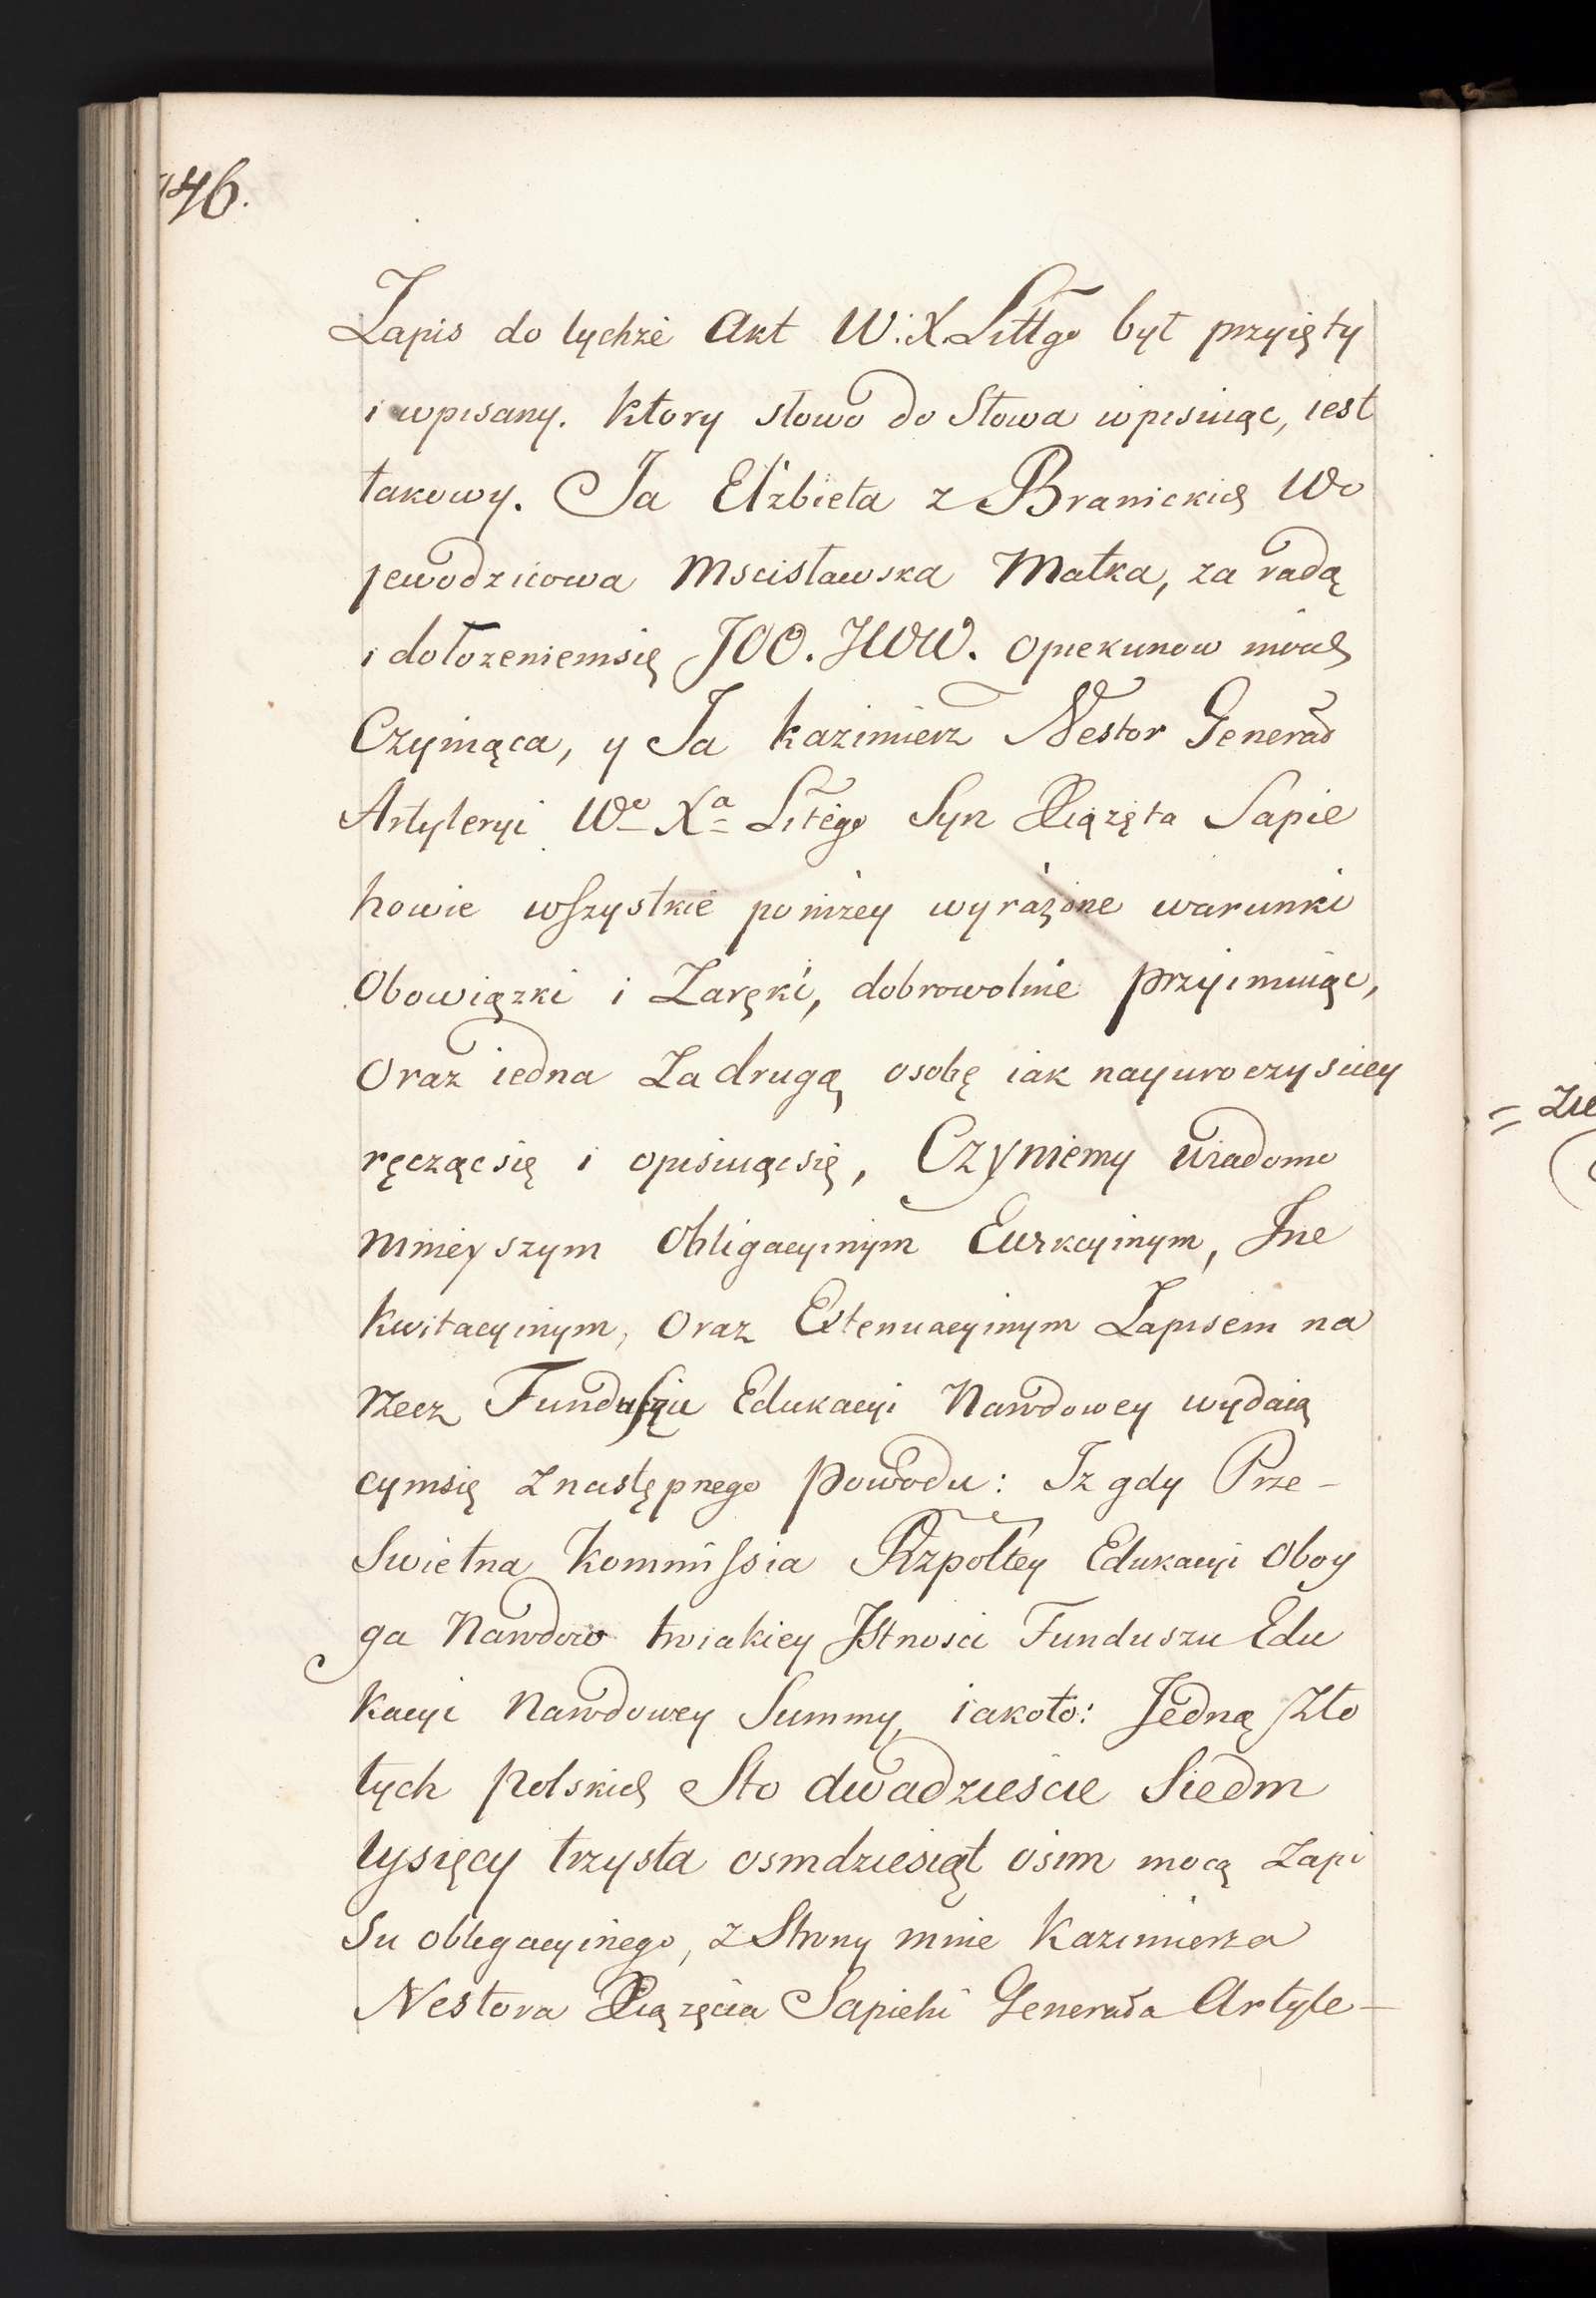 146.
Zapis do tychże Akt W. X. Littgo był przyięty
i wpisany. Ktory słowo do Słowa wpisuiąc, iest
takowy. Ja Elżbieta z Branickich Wo
jewodzicowa Mscisławska Matka, za radą
i dołożeniemsię JOO. JWW. Opiekunow moich
Czyniąca, y Ja Kazimierz Nestor Generał
Artyleryi Wo Xa Litégo Syn Xiążęta Sapie
howie wszystkie poniżey wyrażone warunki
Obowiązki i Zaręki, dobrowolnie przyimuiąc,
Oraz iedna Za drugą osobę iak nayuroczysciey
ręcząc się i opisuiąc się, Czyniemy wiadomo
ninieyszym Obligacyinym Ewikcyinym, Ine
kwitacyinym, Oraz Extenuacyinym Zapisem na
rzecz Funduszu Edukacyi Narodowey wydaią
cymsię Znastępnego powodu: Iz gdy Prze-
Swietna Kommissia Rzpoltey Edukacyi Oboy
ga Narodow troiakiey Istnosci Funduszu Edu
Kacyi Narodowey Summy, iakoto: Jedną Zło
tych polskich Sto dwadzieście Siedm
tysięcy trzysta osmdziesiąt ośim mocą Zapi
Su obligacyinego, z Strony mnie Kazimierza
Nestora Xiążęcia Sapiehi Generała Artyle-
= Zie